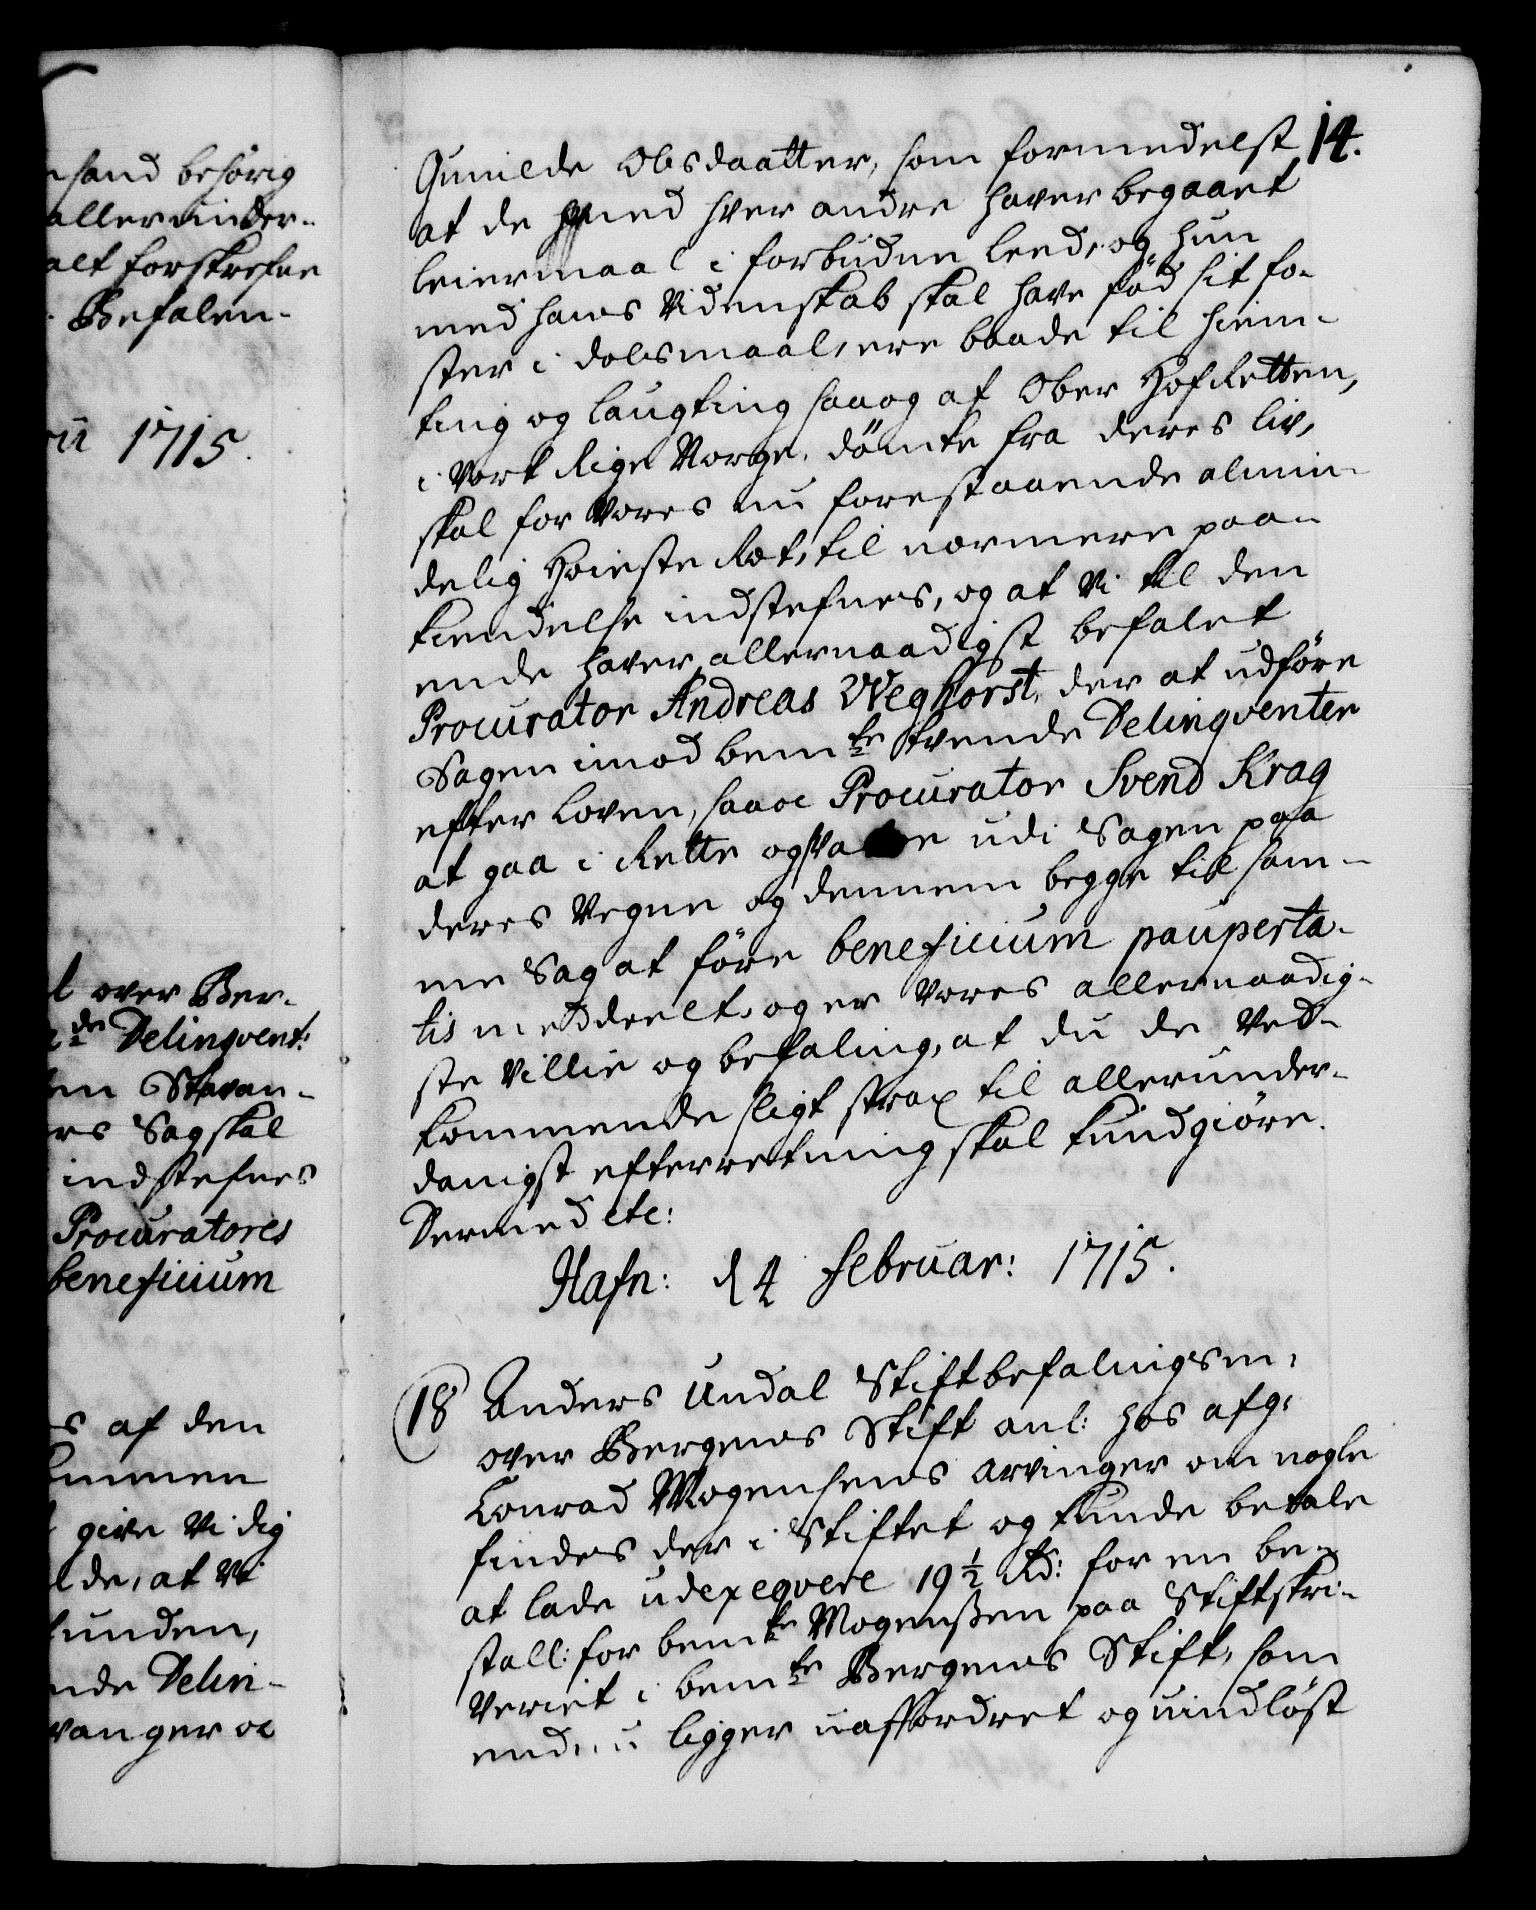 hand behörig
allerunder-
alt forskrefne
Befalen-
ru 1715.
l over Ber-
de Delinqvent:
en Stavan-
rs Sag skal
indstefnes
Procuratores
beneficium
s af den
ommen
give Vi dig
lde, at Vi
unden,
nde Delin-
vanger oc
14.
Gunilde Olsdaatter, som formedelst
at de med hver andre haver begaaet
leiermaal i forbuden leed, og hun
med hans Videnskab skal have föd sit fo-
ster i dolsmaal, ere baade til hiem-
ting og laugting saaog af Ober Hof Retten,
i Vort Rige Norge, dömte fra deres liv,
skal for Vores nu forestaaende almin-
delig Höieste Ret, til nærmere paa-
kiendelse indstefnes, og at Vi til den
ende haver allernaadigst befalet
Procurator Andreas Weghorst, der at udföre
Sagen imod bemte tvende Delinqventer
efter Loven, saa oc Procurator Svend Krag
at gaa i Rette og svare udi Sagen paa
deres Vegne og dennem begge til sam-
me Sag at före beneficium pauperta-
tis meddeelt, og er Vores allernaadig-
ste Villie og befaling, at du de Ved-
kommende sligt strax til allerunder-
danigst efterretning skal kundgiöre.
Dermed etc:
Hafn: d 4 Februar: 1715.
18 Anders Undal Stiftbefalingsm:
over Bergens Stift anl: hos afg:
Conrad Mogensens arvinger om nogle
findes der i Stiftet og kunde betale
at lade udexeqvere 19 1/2 Rd: for en be-
stall: for bemte Mogenssen paa Stiftskri-
veriet i bemte Bergens Stift, som
endnu ligger uaffordret og uindlöst